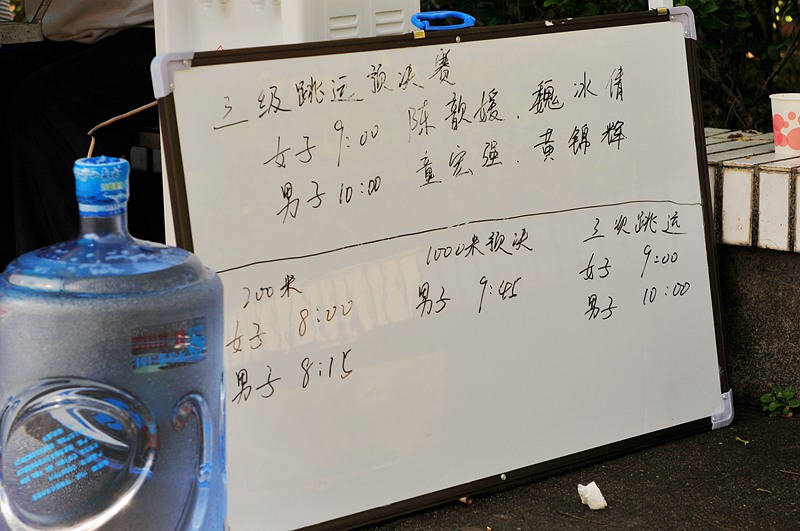 三级跳远预决赛
女子 9:00 陈歆媛、魏冰倩
男子 10:00 童宏强、黄锦辉
200米
女子 8:00
男子 8:15
1000米预决
男子 9:45
三次跳远
女子 9:00
男子 10:00